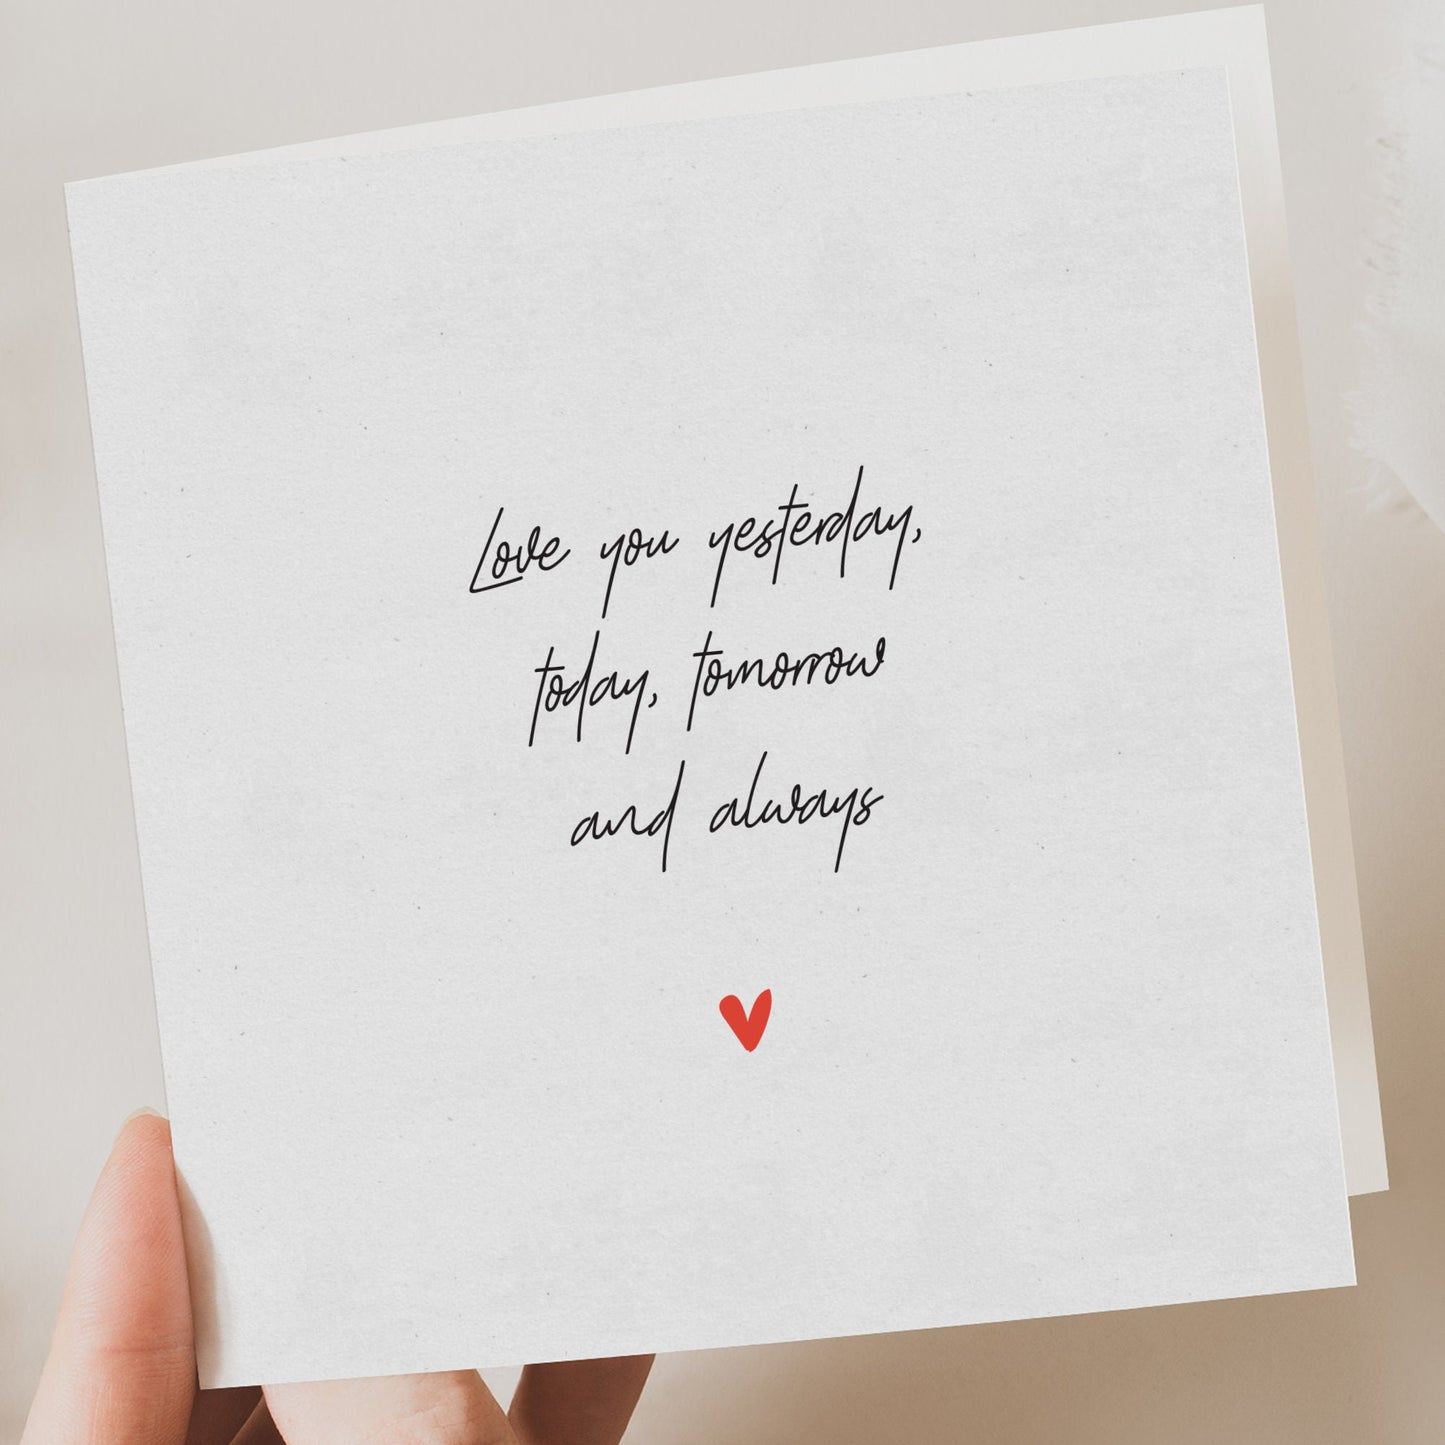 Love you yesterday,
today, tomorrow
and always